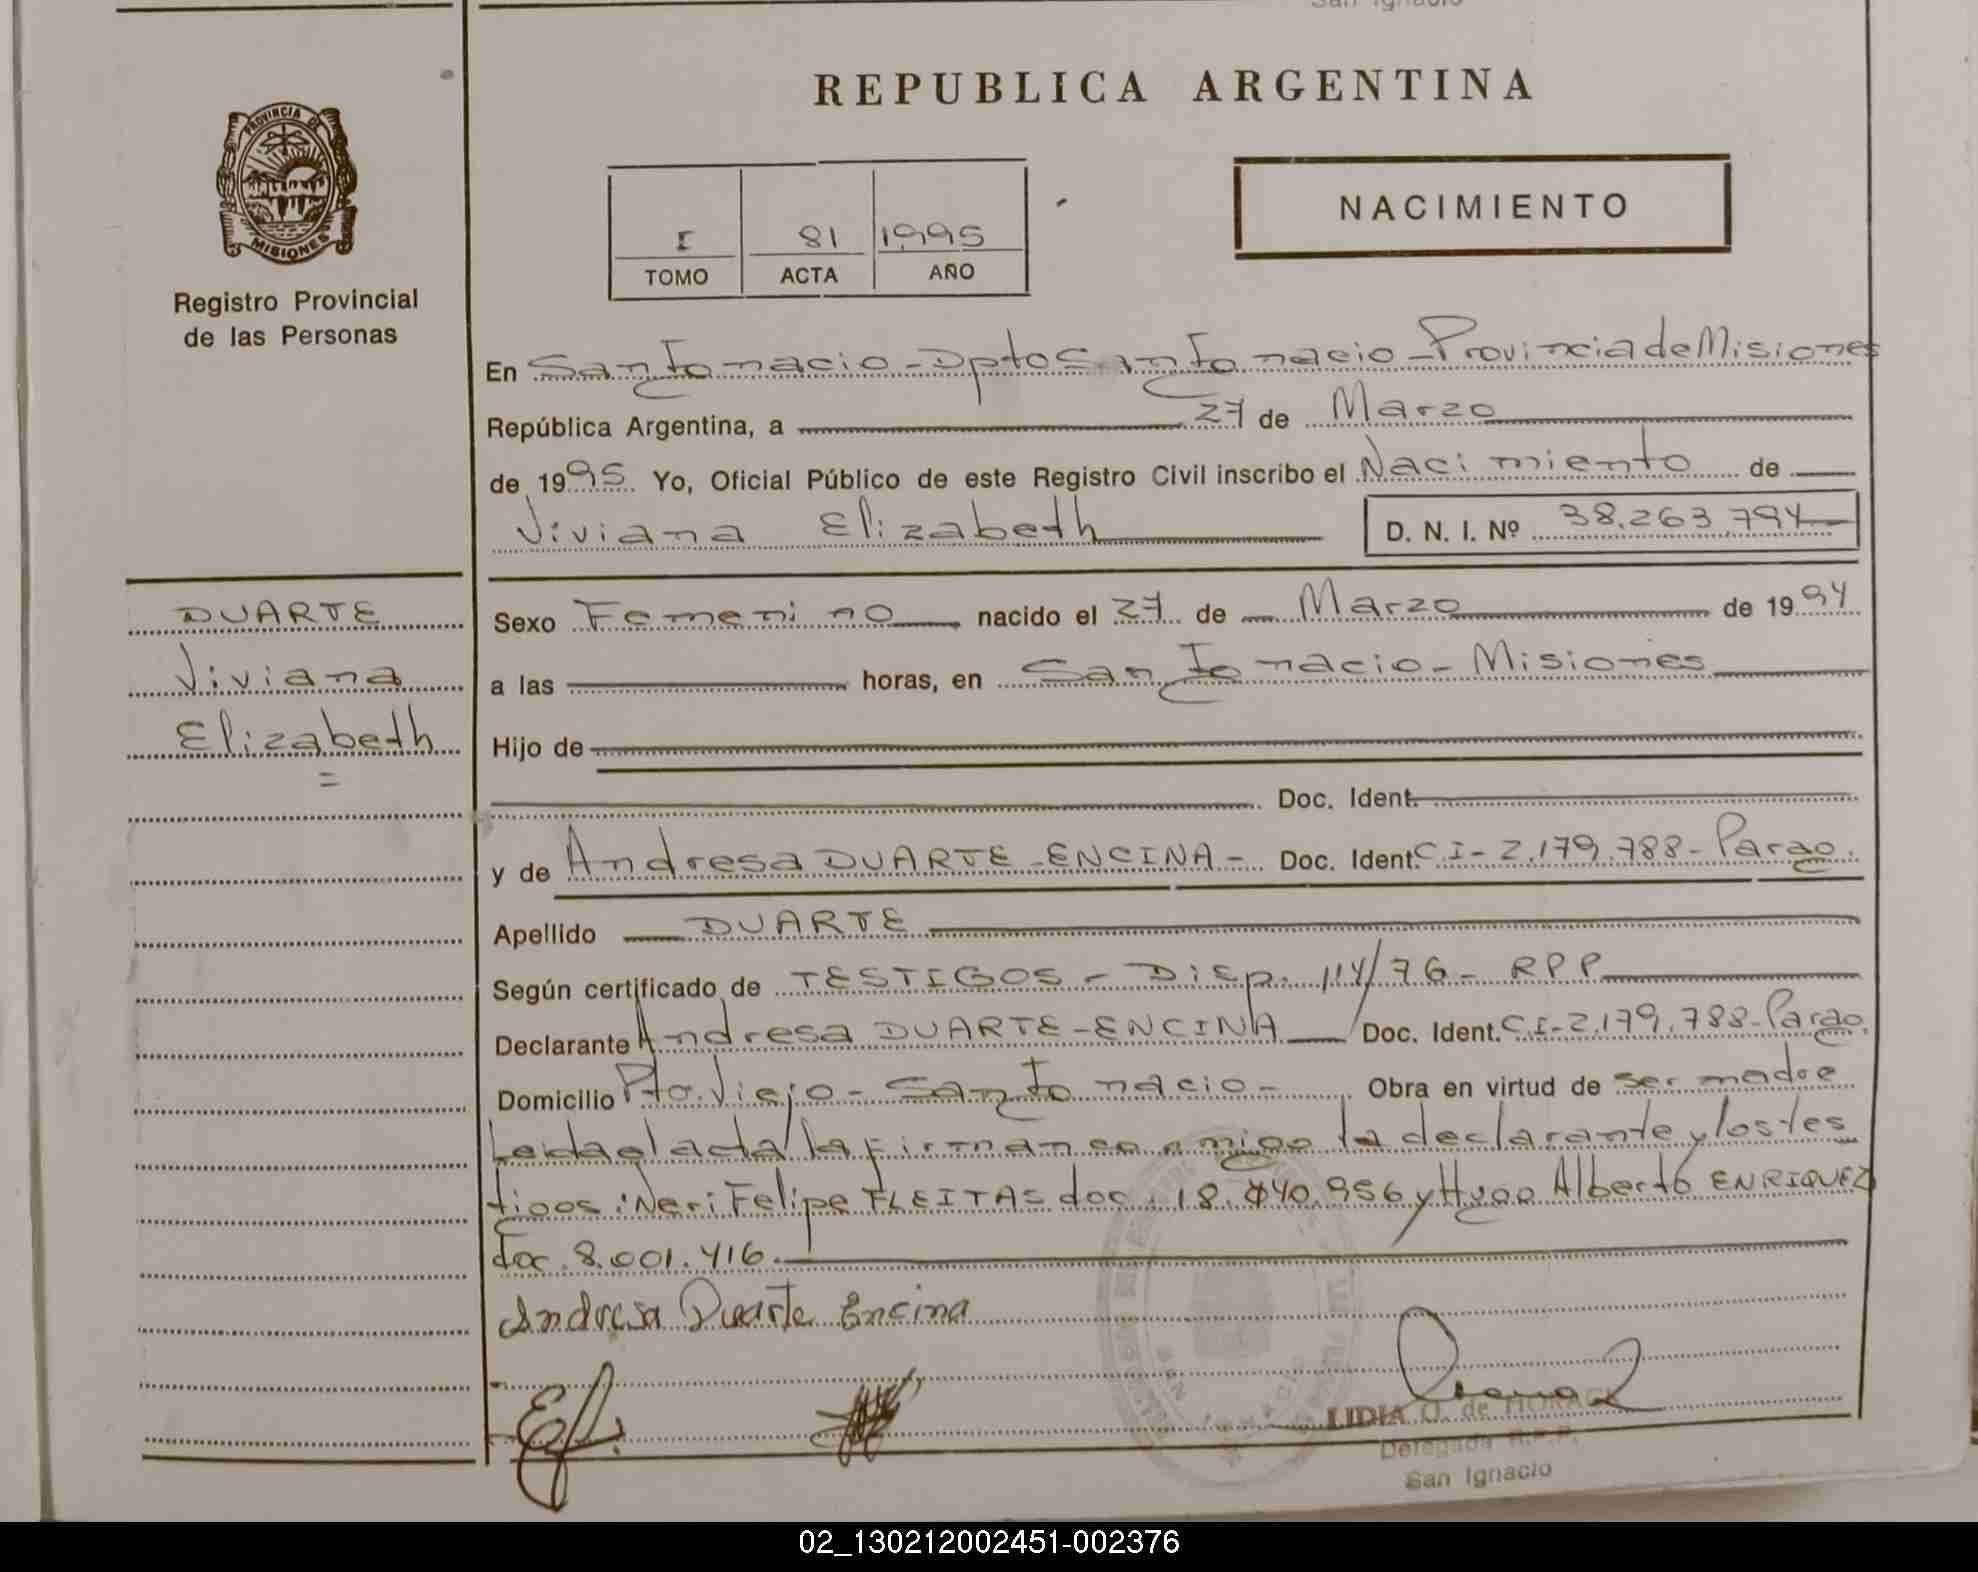 REPUBLICA ARGENTINA
PROVINCIA DE
MISIONES
Registro Provincial
de las Personas
I 81 1995
TOMO ACTA AÑO
NACIMIENTO
En San Ignacio - Dpto San Ignacio - Provincia de Misiones
República Argentina, a 27 de Marzo
de 1995. Yo, Oficial Público de este Registro Civil inscribo el Nacimiento de
Viviana Elizabeth D. N. I. Nº 38.263.794
DUARTE
Viviana
Elizabeth
=
Sexo Femenino nacido el 27 de Marzo de 1994
a las horas, en San Ignacio - Misiones
Hijo de
Doc. Ident.
y de Andresa DUARTE - ENCINA - Doc. Ident. C.I - 2.179.788 - Parag.
Apellido DUARTE
Según certificado de TESTIGOS - Disp. 114/76 - RPP
Declarante Andresa DUARTE - ENCINA Doc. Ident. C.I - 2.179.788 - Parag.
Domicilio Pto. Viejo - San Ignacio - Obra en virtud de ser madre
Leida el acta la firman conmigo la declarante y los tes
tigos: Neri Felipe FLEITAS doc. 18.440.956 y Hugo Alberto ENRIQUEZ
doc. 8.001.416.
Andresa Duarte Encina
LIDIA O. de HORACK
Delegada R.P.P.
San Ignacio
02_130212002451-002376